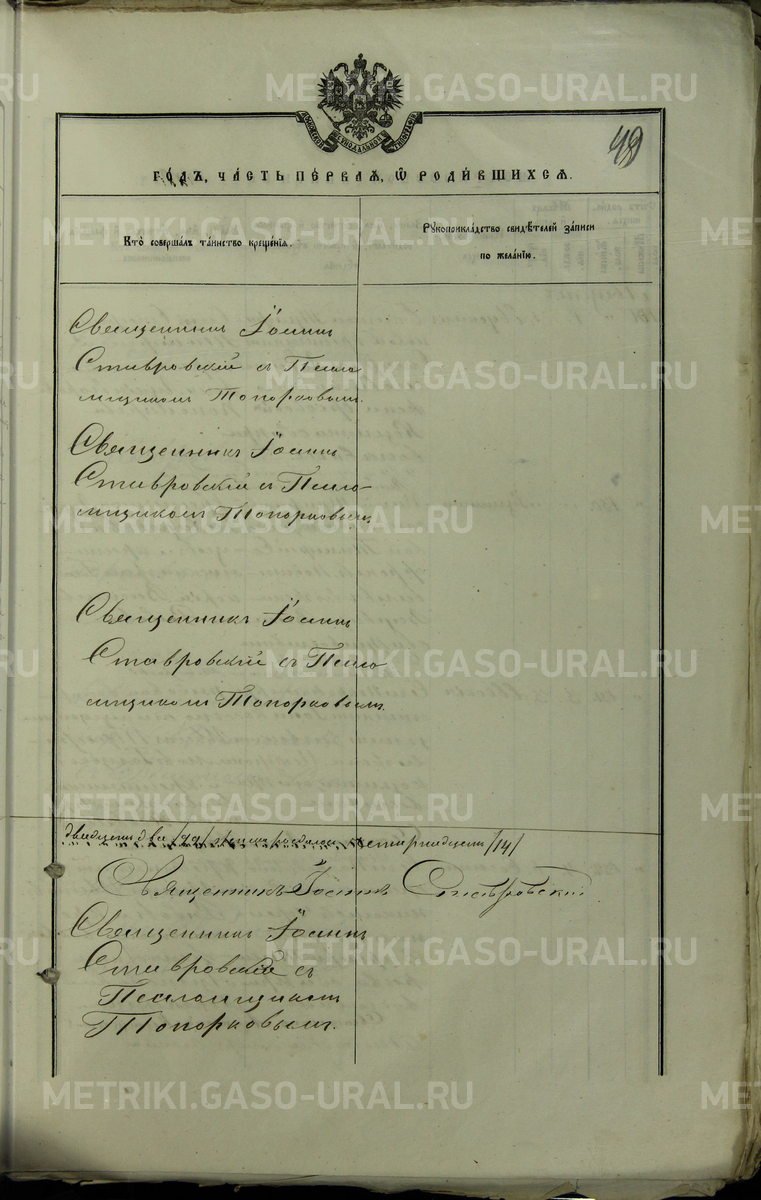 METRIKI.GASO-URAL.RU
49
МОСКОВСКОЙ СѴНОДАЛЬНОЙ ТИПОГРАФІИ
ГО́ДЪ, ЧА́СТЬ ПЕ́РВАѦ, Ѡ҆ РОДИ́ВШИХСѦ.
Кто̀ соверша́лъ та́инство креще́нїѧ.
Рꙋкоприкла́дство свидѣ́телей за́писи
по жела́нїю.
Священникъ Іоаннъ
Ставровскій съ Псало
мщикомъ Топорковымъ.
Священникъ Іоаннъ
Ставровскій съ Псало-
мщикомъ Топорковымъ
Священникъ Іоаннъ
Ставровскій съ Псало
мщикомъ Топорковымъ.
двадцать два /22/ женска четырнадцать /14/
Священникъ Іоаннъ Ставровскій
Священникъ Іоаннъ
Ставровскій съ
Псаломщикомъ
Топорковымъ.
METRIKI.GASO-URAL.RU